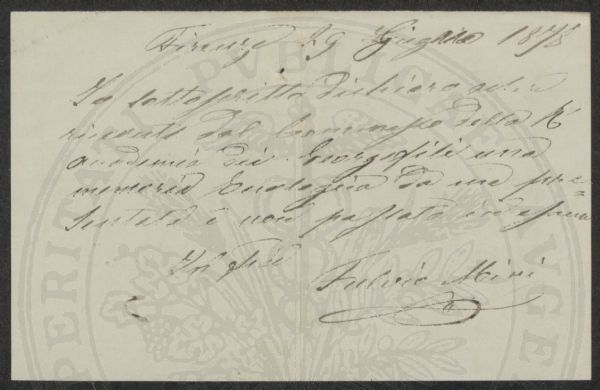 Firenze 19 Giugno 1878
Io sottoscritto dichiaro aver
ricevuto dal Commesso della R
Accademia dei Georgofili una
memoria Enologica da me pre=
sentata e non passata in esame
In fede
Fulvio Mini